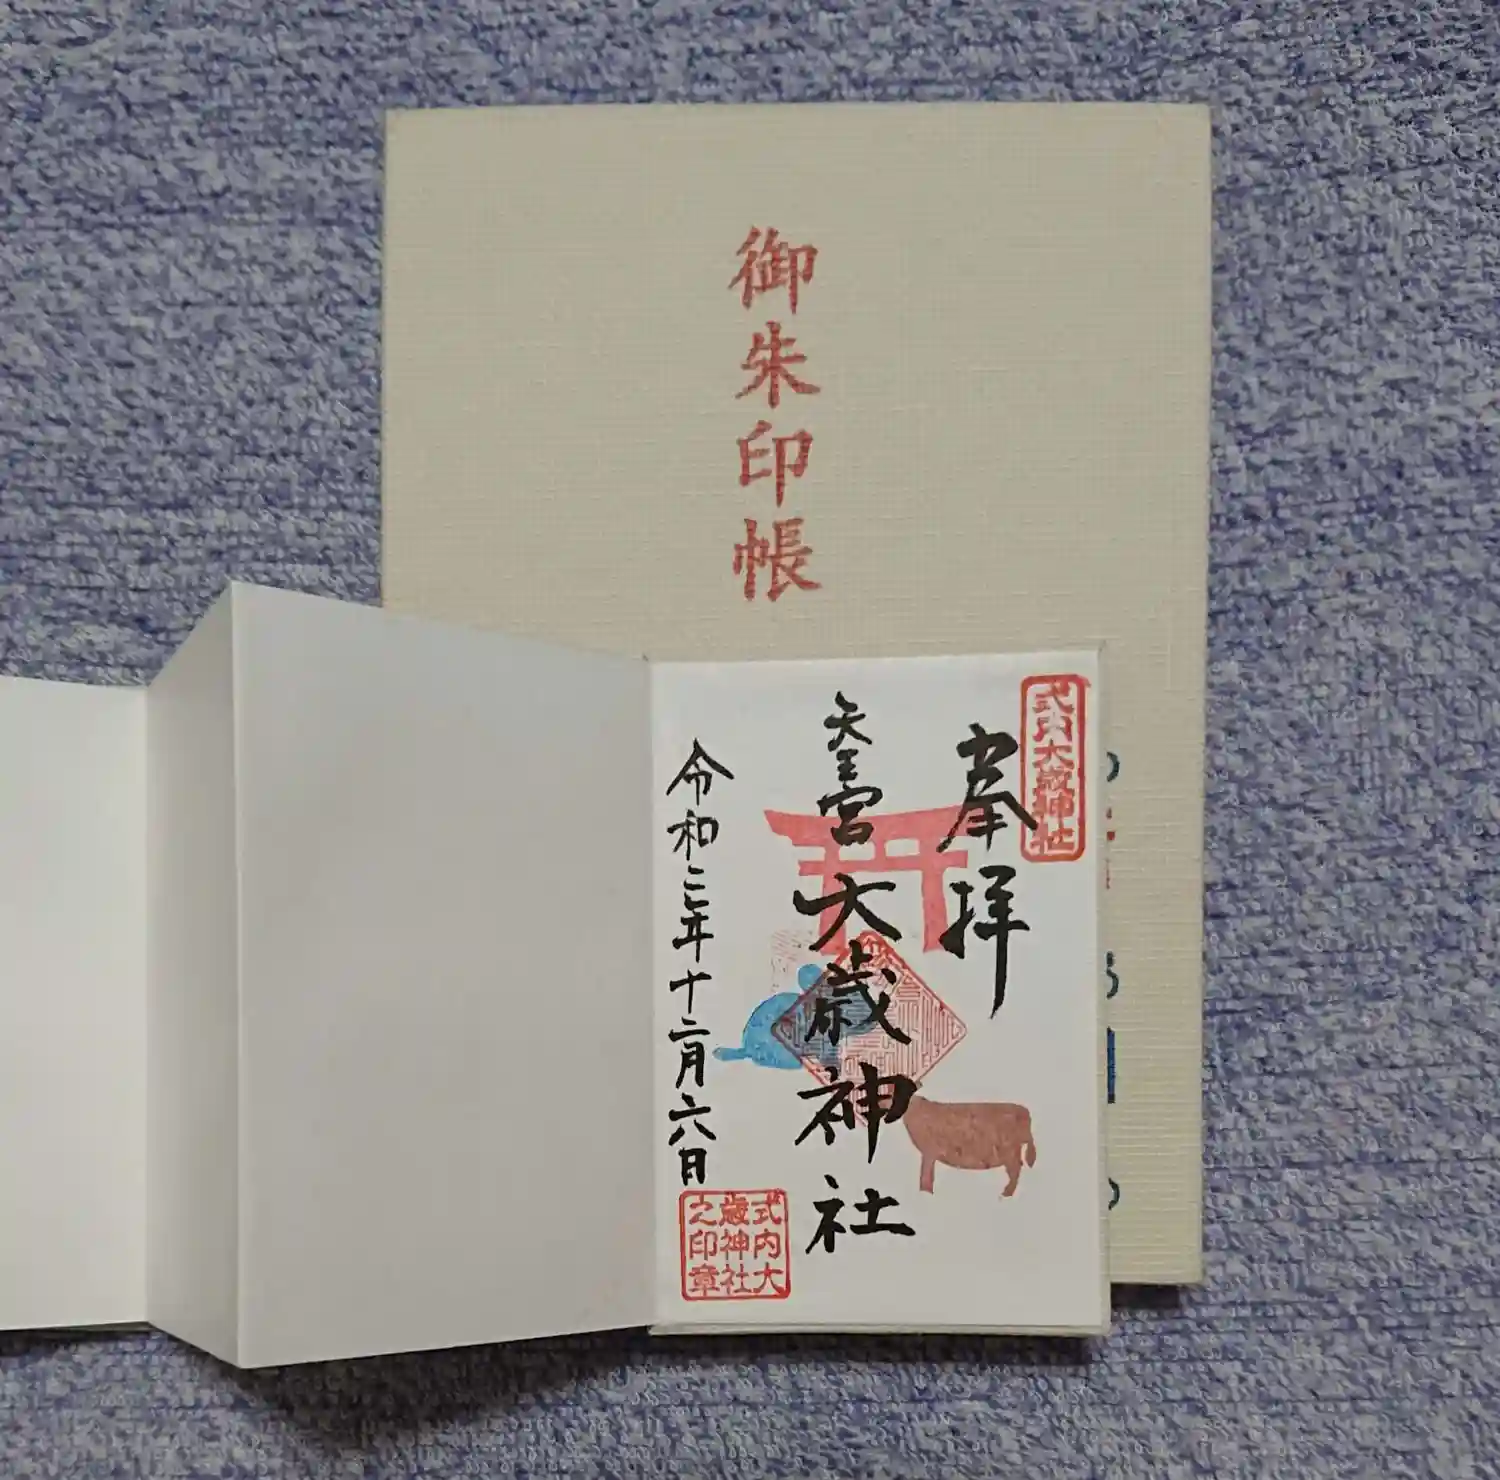 御朱印帳
式内大歳神社
奉拝
天王宮
大歳神社
令和三年十二月六日
式内大
歳神社
之印章